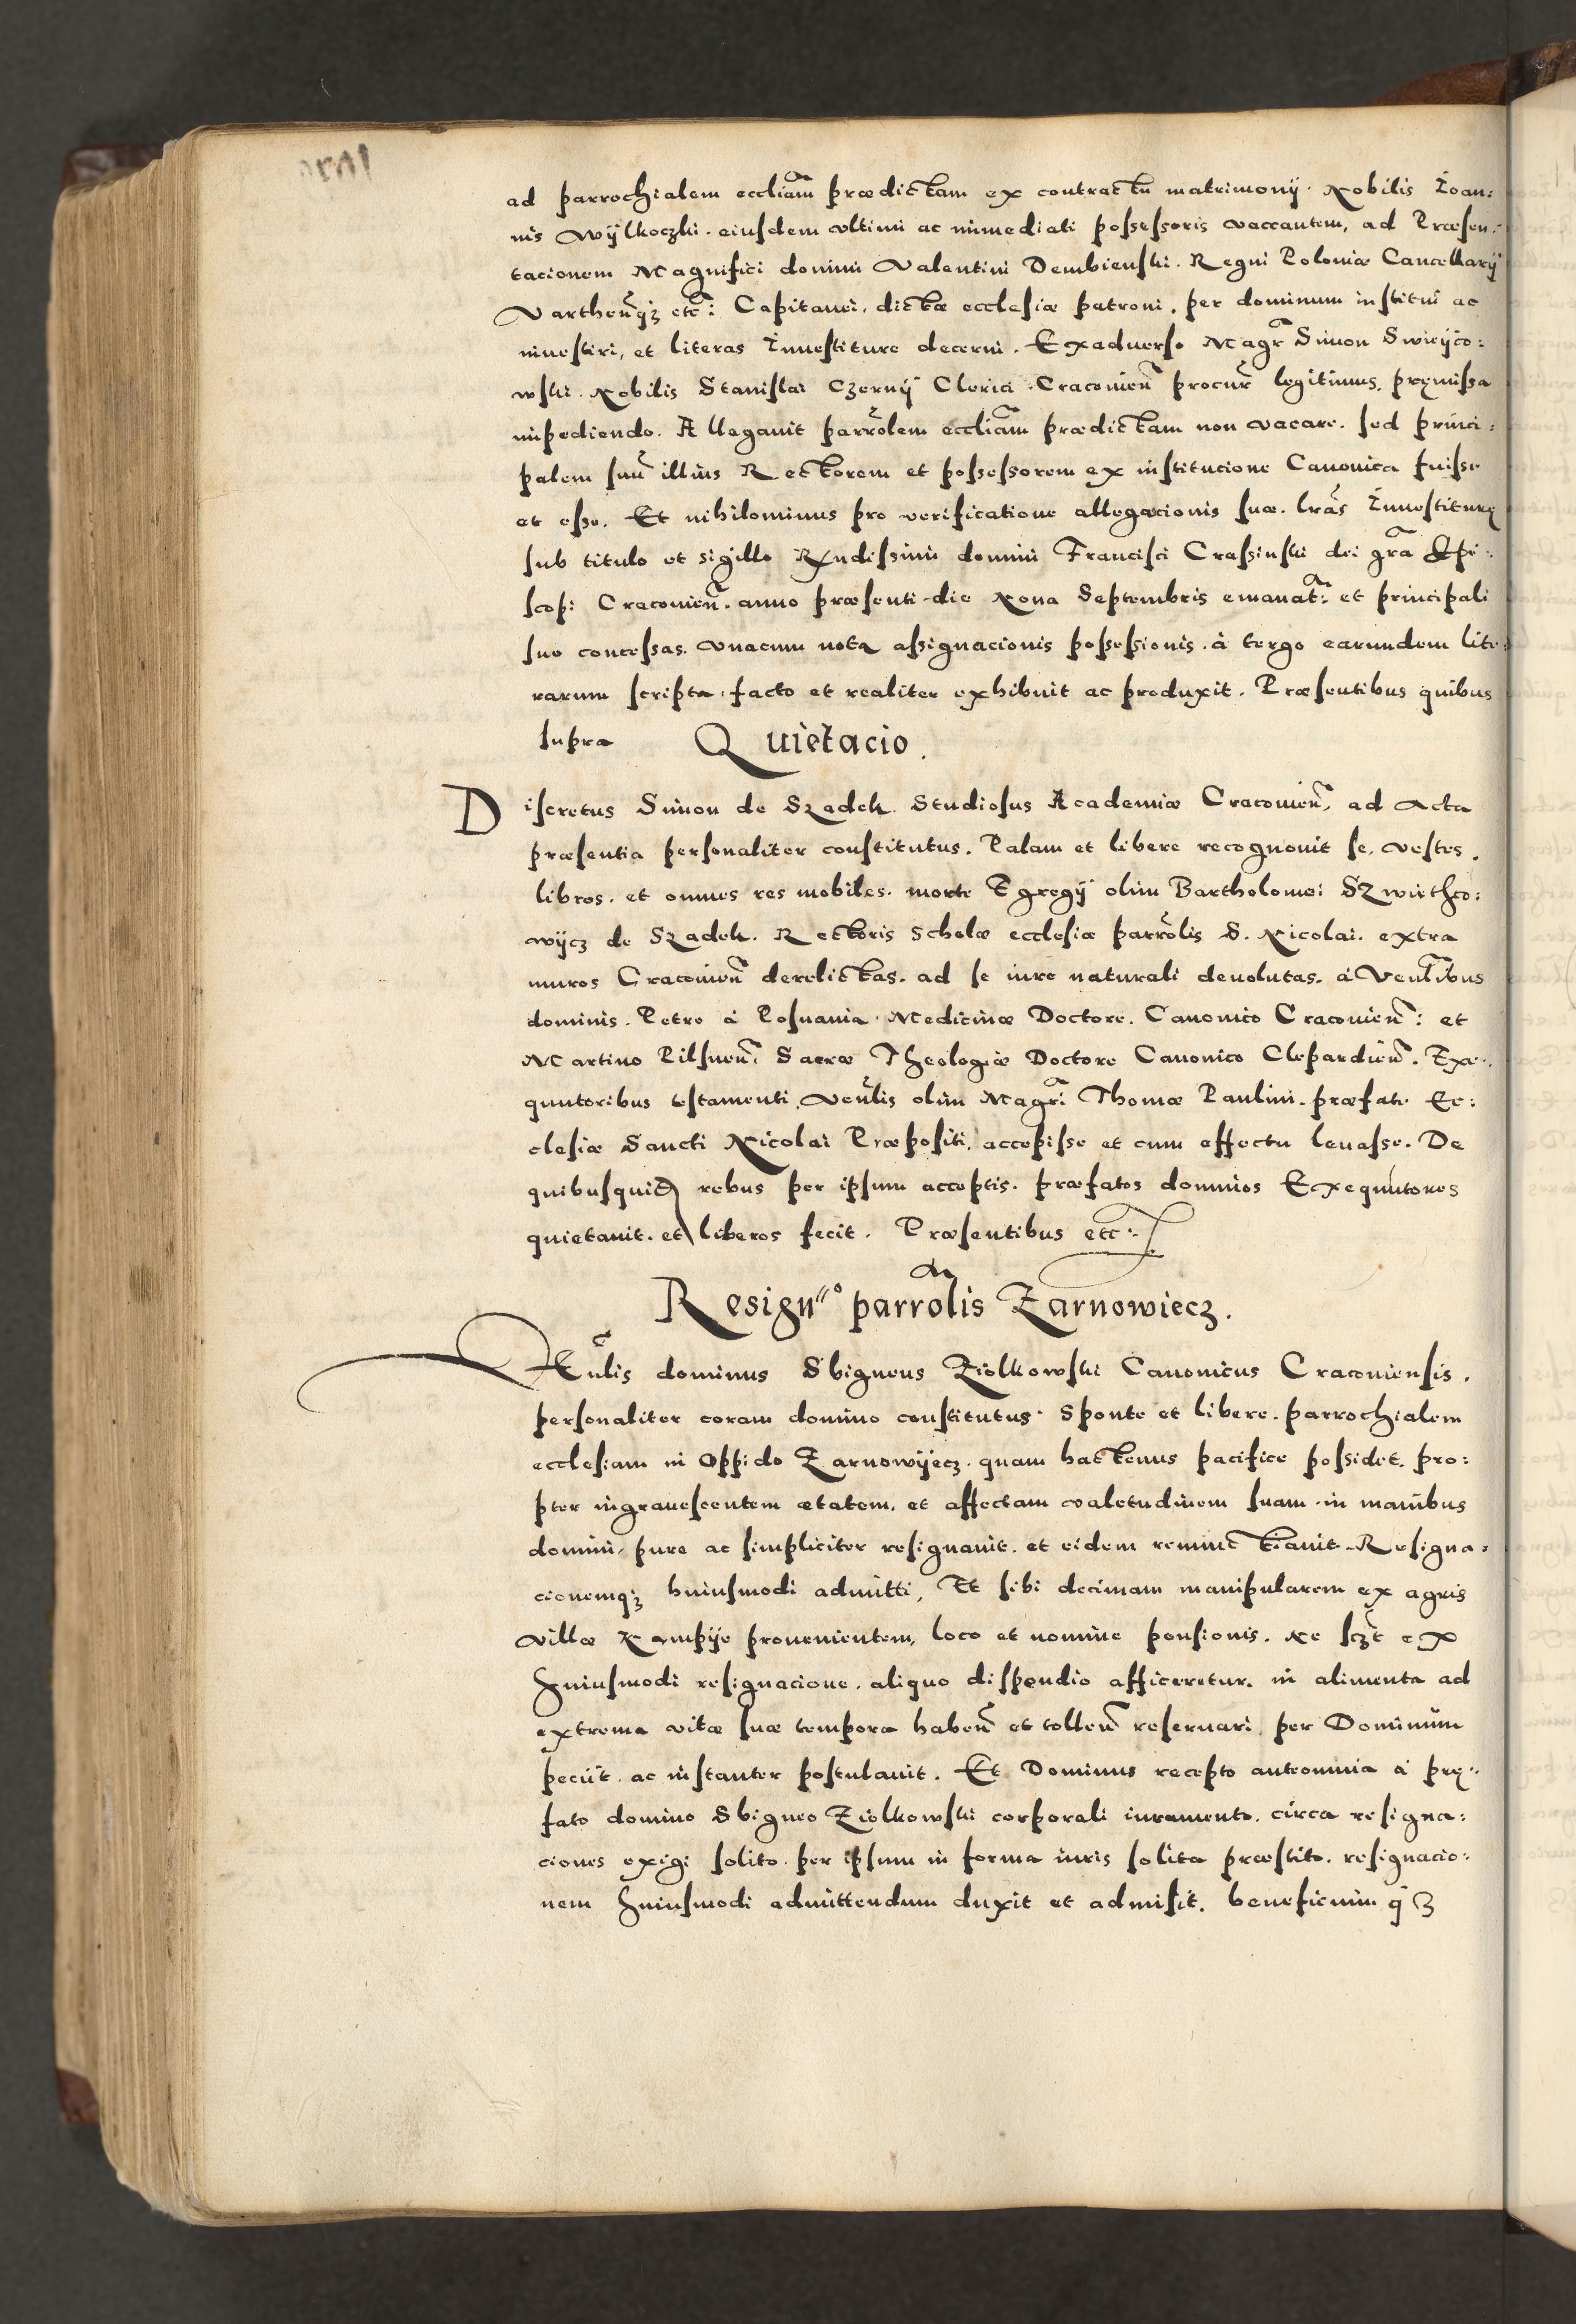 ad parrochialem eccliam prædictam ex contractu matrimonij. Nobilis Ioan:
nis Wylkoczki. eiusdem vltimi ac immediati possessoris vaccantem, ad Præsen:
tacionem Magnifici domini Valentini Dembienski. Regni Poloniæ Cancellarij
Varthen̄qȝ etc: Capitanei, dictæ ecclesiæ patroni, per dominum institui ac
inuestiri, et literas Inuestiture decerni. Exaduerso Magr̄ Simon Swieyco:
wski. Nobilis Stanislai Czerny Clerici Cracouien̄ procur̄ legitimus, pręmissa
impediendo. Allegauit parrolem eccliam prædictam non vacare. sed princi:
palem suū illius Rectorem et possessorem ex institucione Canonica fuisse
et esse. Et nihilominus pro verificatione allegacionis suæ. lr̄as Inuestiturę
sub titulo et sigillo Rn̄dissimi domini Francisci Crassinski dei gr̄a Epi:
scopi Cracouien̄. anno præsenti die Nona Septembris emanat: et principali
suo concessas. vnacum nota assignacionis possessionis. à tergo earundem lite:
rarum scripta. facto et realiter exhibuit ac produxit. Præsentibus quibus
supra Quietacio.
Discretus Simon de Szadek. Studiosus Academiæ Cracouien̄, ad Acta
præsentia personaliter constitutus. Palam et libere recognouit se, vestes,
libros. et omnes res mobiles. morte Egregij olim Bartholomei Szwiethco:
wycz de Szadek. Rectoris Scholæ ecclesiæ parrolis S. Nicolai. extra
muros Cracouien̄ derelictas. ad se iure naturali deuolutas. à Ven̄libus
dominis. Petro à Posnania Medicinæ Doctore. Canonico Cracouien̄: et
Martino Pilsnen̄. Sacræ Theologiæ Doctore Canonico Clepardien̄. Exe:
quutoribus testamenti, Ven̄lis olim Magr̄i Thomæ Paulini. præfatę Ec:
clesiæ Sancti Nicolai Præpositi, accepisse et cum effectu leuasse. De
quibusquid̄ rebus per ipsum acceptis. præfatos dominos Exequutores
quietauit. et liberos fecit. Præsentibus etc:
Resignᵒ parrolis Zarnowiecz.
Vēn̄lis dominus Sbigneus Ziolkowski Canonicus Cracouiensis,
personaliter coram domino constitutus. Sponte et libere. parrochialem
ecclesiam in Oppido Zarnowyecz. quam hactenus pacifice possidet. pro:
pter ingrauescentem ætatem, et affectam valetudinem suam. in manibus
domini, pure ac simpliciter resignauit. et eidem renunctiauit. Resigna:
cionemqȝ huiusmodi admitti, Et sibi decimam manipularem ex agris
villæ Kempye prouenientem, loco et nomine pensionis. Ne sczt̄ ex
huiusmodi resignacione, aliquo dispendio afficeretur. in alimenta ad
extrema vitæ suæ tempora haben̄ et tollen̄ reseruari per Dominum
peciit. ac instanter postulauit. Et Dominus recepto anteomnia à prę:
fato domino Sbigneo Ziolkowski corporali iuramento. circa resigna:
ciones exigi solito. per ipsum in forma iuris solita præstito. resignacio:
nem huiusmodi admittendum duxit et admisit. beneficium qȝ